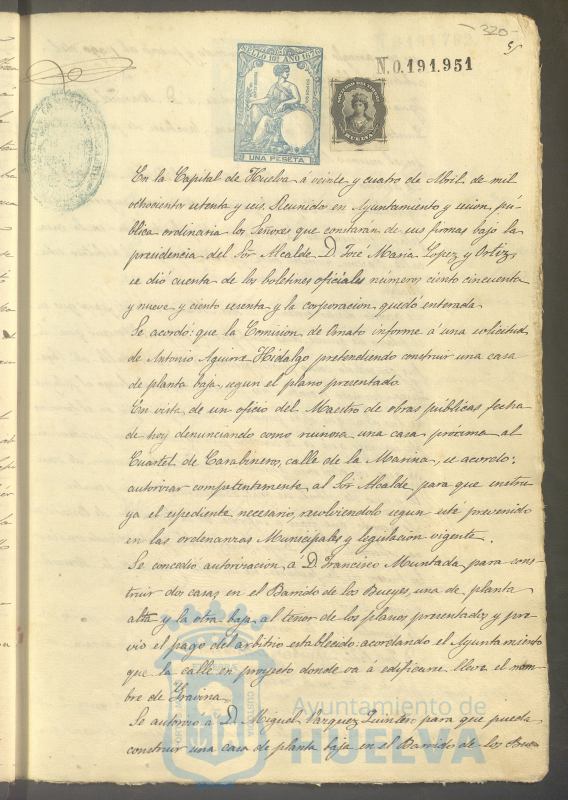 320
N.0.191.951
SELLO 10º AÑO 1876
UNA PESETA
HUELVA
En la Capital de Huelva á veinte y cuatro de Abril de mil
ochocientos setenta y seis. Reunidos en Ayuntamiento y sesion pú-
blica ordinaria los Señores que constarán de sus firmas bajo la
presidencia del Sor Alcalde D. José Maria Lopez y Ortiz,
se dió cuenta de los boletines oficiales números ciento cincuenta
y nueve y ciento sesenta y la corporacion quedó enterada.
Se acordó: que la Comision de Ornato informe á una solicitud
de Antonio Aguirre Hidalgo pretendiendo construir una casa
de planta baja, segun el plano presentado.
En vista de un oficio del Maestro de obras públicas fecha
de hoy denunciando como ruinosa una casa próxima al
Cuartel de Carabineros, calle de la Marina, se acordo:
autorizar competentemente al Sor Alcalde para que instru-
ya el espediente necesario, resolviendolo segun esté prevenido
en las ordenanzas Municipales y legislacion vigente.
Se concedió autorizacion á D. Francisco Muntada para cons-
truir dos casas en el Barrido de los Bueyes una de planta
alta y la otra baja, al tenor de los planos presentados y pre-
vio el pago del arbitrio establecido acordando el Ayuntamiento
que la calle en proyecto donde va á edificarse lleve el nom-
bre de Gravina.
Se autorizó á D. Miguel Vazquez Quintero para que pueda
construir una casa de planta baja en el Barrido de los Bue-
Ayuntamiento de
HUELVA